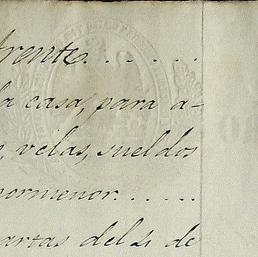 frente......
la casa, para a-
velas, sueldos
pormenor.....
cartas del 4 de